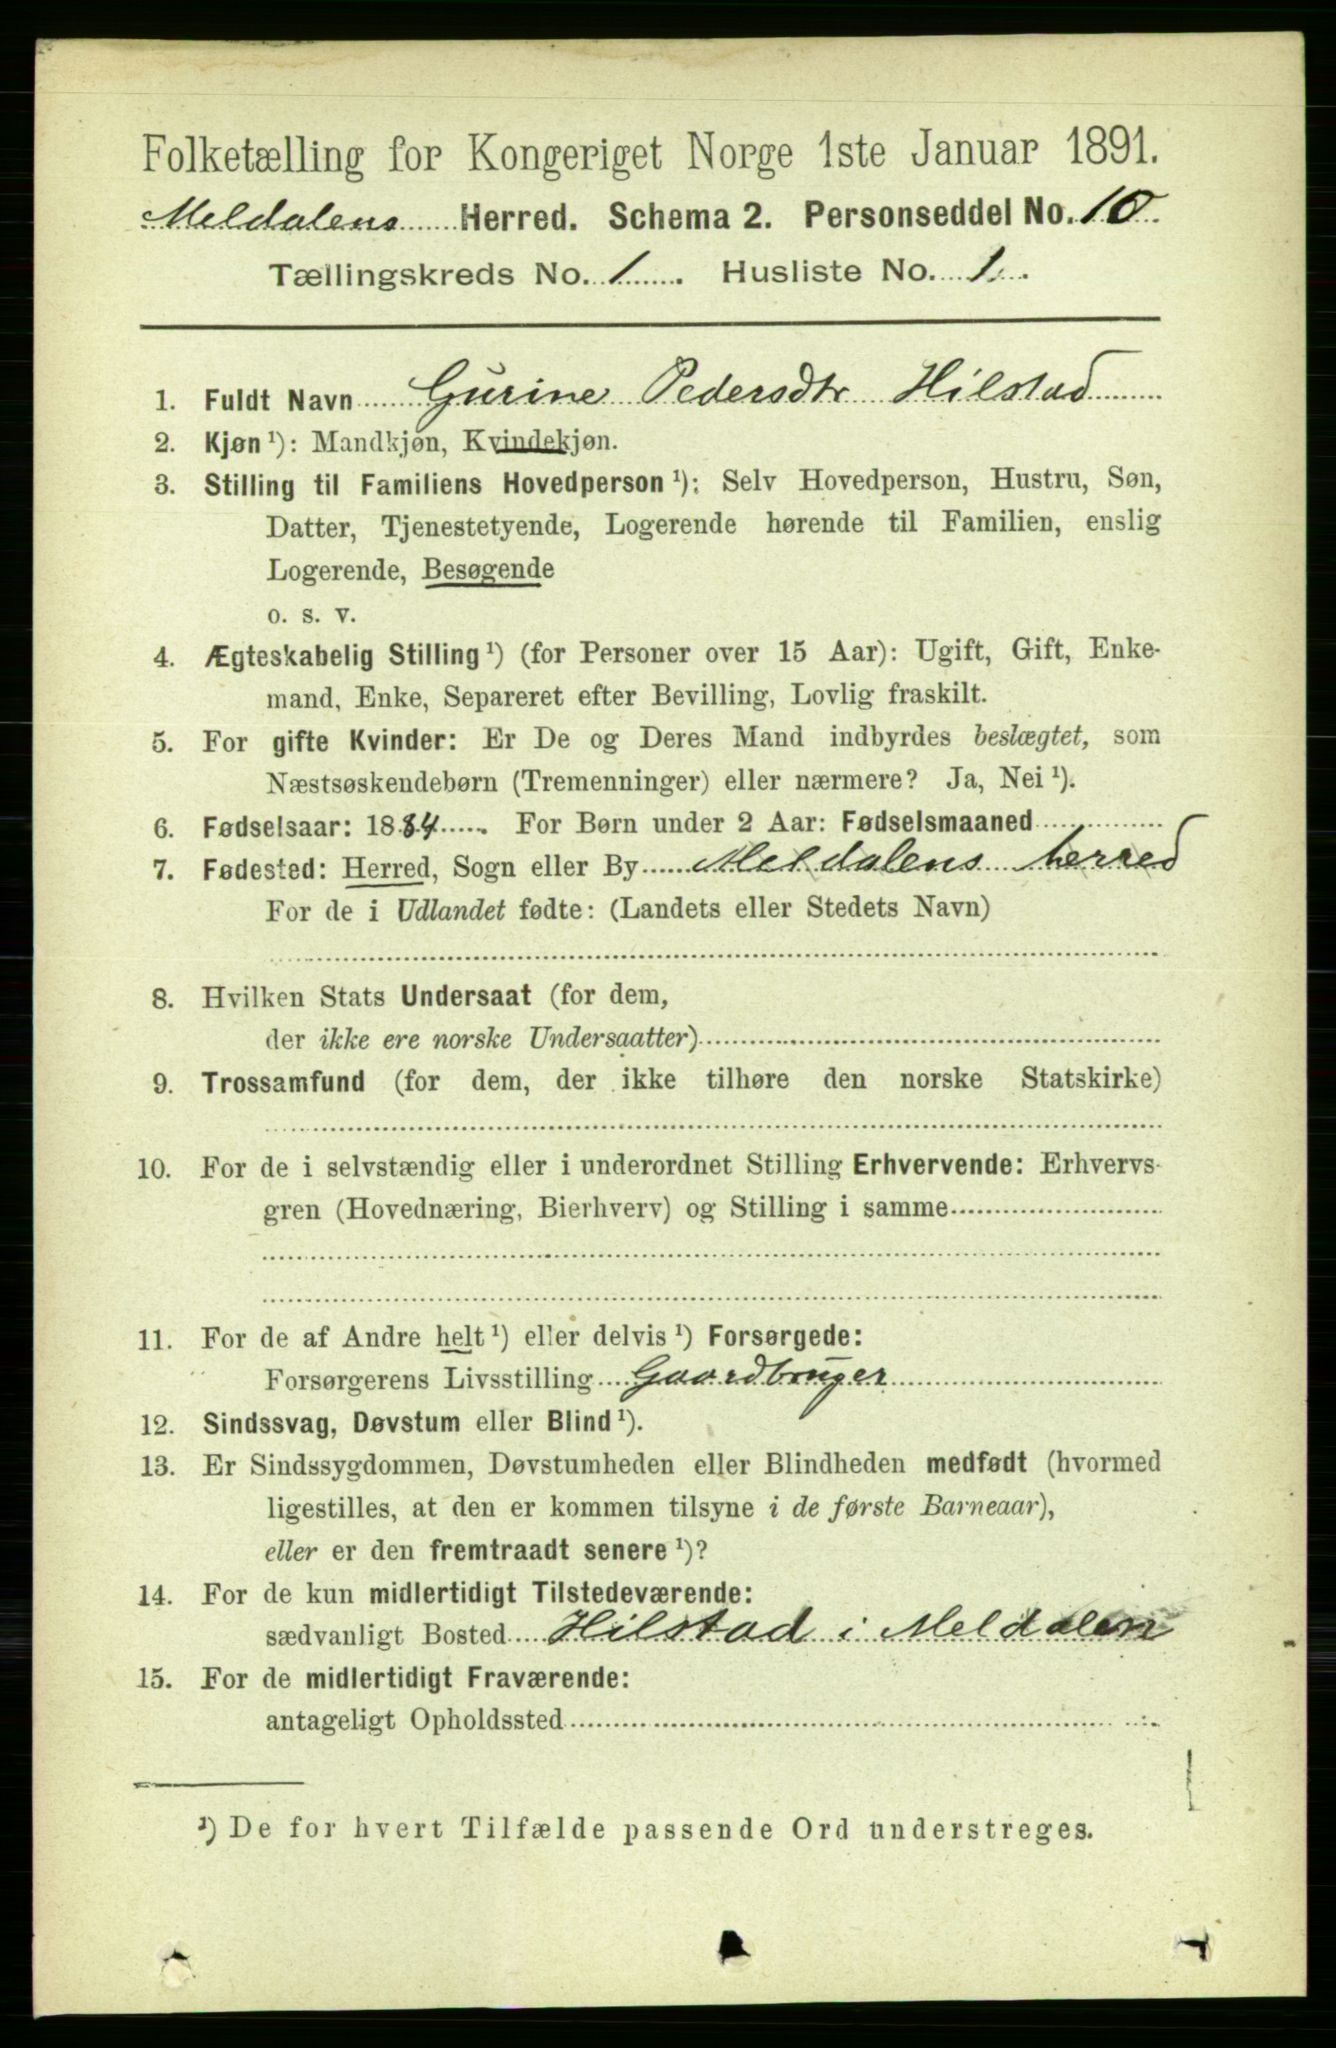 Folketælling for Kongeriget Norge 1ste Januar 1891.
Meldalens Herred. Schema 2. Personseddel No. 10.
Tællingskreds No. 1. Husliste No. 1.
1. Fuldt Navn Gurine Pedersdtr Hilstad
2. Kjøn ¹): Mandkjøn, Kvindekjøn.
3. Stilling til Familiens Hovedperson ¹): Selv Hovedperson, Hustru, Søn,
Datter, Tjenestetyende, Logerende hørende til Familien, enslig
Logerende, Besøgende
o. s. v.
4. Ægteskabelig Stilling ¹) (for Personer over 15 Aar): Ugift, Gift, Enke-
mand, Enke, Separeret efter Bevilling, Lovlig fraskilt.
5. For gifte Kvinder: Er De og Deres Mand indbyrdes beslægtet, som
Næstsøskendebørn (Tremenninger) eller nærmere? Ja, Nei ¹).
6. Fødselsaar: 1884. For Børn under 2 Aar: Fødselsmaaned
7. Fødested: Herred, Sogn eller By Meldalens herred
For de i Udlandet fødte: (Landets eller Stedets Navn)
8. Hvilken Stats Undersaat (for dem,
der ikke ere norske Undersaatter)
9. Trossamfund (for dem, der ikke tilhøre den norske Statskirke)
10. For de i selvstændig eller i underordnet Stilling Erhvervende: Erhvervs-
gren (Hovednæring, Bierhverv) og Stilling i samme
11. For de af Andre helt ¹) eller delvis ¹) Forsørgede:
Forsørgerens Livsstilling Gaardbruger
12. Sindssvag, Døvstum eller Blind ¹).
13. Er Sindssygdommen, Døvstumheden eller Blindheden medfødt (hvormed
ligestilles, at den er kommen tilsyne i de første Barneaar),
eller er den fremtraadt senere ¹)?
14. For de kun midlertidigt Tilstedeværende:
sædvanligt Bosted Hilstad i Meldalen
15. For de midlertidigt Fraværende:
antageligt Opholdssted
¹) De for hvert Tilfælde passende Ord understreges.